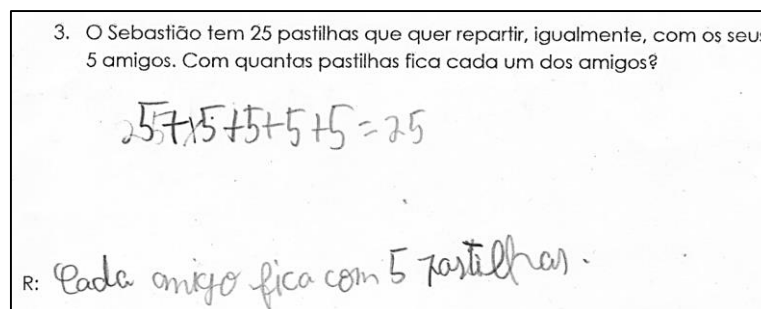 3. O Sebastião tem 25 pastilhas que quer repartir, igualmente, com os seus
5 amigos. Com quantas pastilhas fica cada um dos amigos?
5+5+5+5+5=25
R: Cada amigo fica com 5 pastilhas.